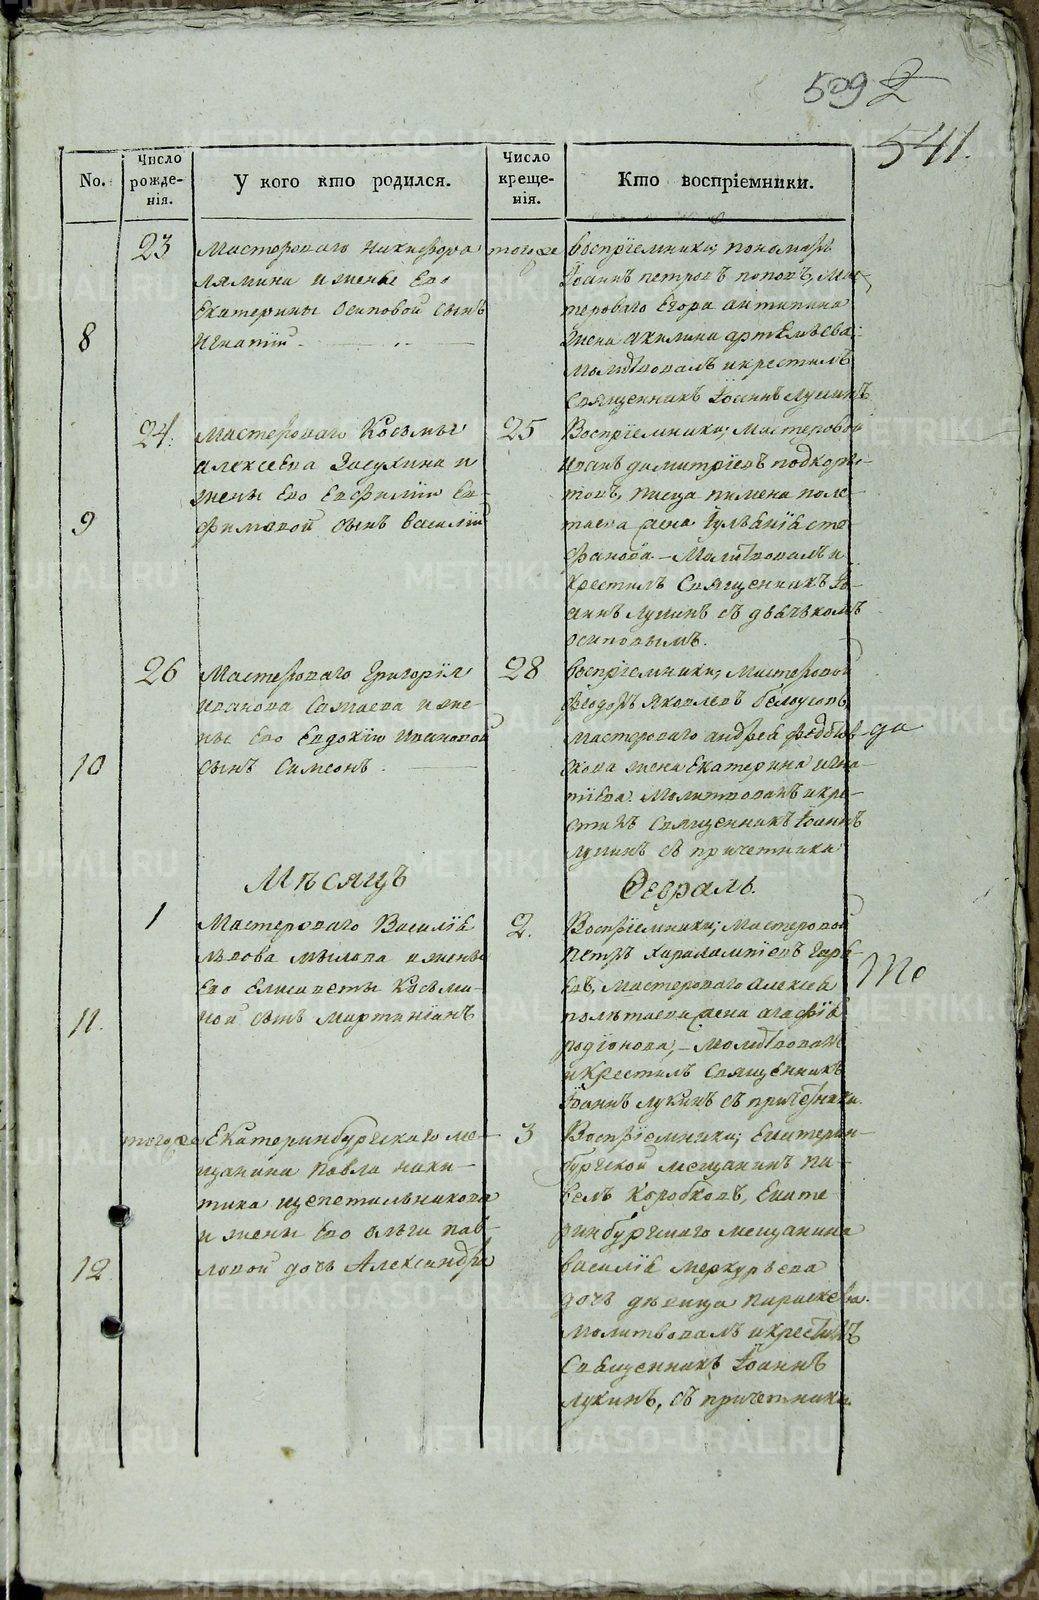 509 2
541.
No.
Число рожде-нія.
У кого кто родился.
Число креще-нія.
Кто воспріемники.
8
23
Мастероваго Никифора
Лямина и жены Его
Екатерины Осиповой сынъ
Игнатій
тогоже
Воспріемники; пономарь
Іоаннъ петровъ поповъ, Мас-
тероваго Егора антипина
жена акилина артемьева:
Молитвовалъ и крестилъ
Священникъ Іоаннъ Лукинъ
9
24.
Мастероваго Козьмы
алексеева Засухина и
жены Его Евфиміи Ев-
фимовой сынъ Василій
25
Воспріемники; Мастеровой
иванъ димитріевъ подкоры-
товъ, писца пимена поле-
таева жена Іуліанія сте-
фанова. – Молитвовалъ и
Крестилъ Священникъ Іо-
аннъ Лукинъ съ дьячькомъ
осиповымъ.
10
26
Мастероваго Григорія
иванова Сапаева и же-
ны Его Евдокіи ивановой
сынъ Симеонъ.
28
Воспріемники; Мастеровой
Феодоръ Яковлевъ белоусовъ,
Мастероваго андрея
жена Екатерина игна-
тіева. Молитвовалъ и кре-
стилъ Священникъ Іоаннъ
Лукинъ съ причетники
да
Мѣсяцъ Февраль.
11.
1
Мастероваго Василія
львова мылова и жены
Его Елисаветы Козьми-
ной сынъ Мартиніанъ
2.
Воспріемники; Мастеровой
петръ харалампіевъ
Мастероваго алексея
полѣтаева жена агафія
родіонова; – Молитвовалъ
и Крестилъ Священникъ
Іоаннъ Лукинъ съ причетники.
то
12
тогоже
Екатеринбургскаго ме-
щанина павла ники-
тина щепетильникова
и жены Его ольги пав-
ловой дочь Александра
3
Воспріемники; Екатерин-
бургской мещанинъ па-
велъ Коробковъ, Екате-
ринбургскаго мещанина
василія меркурьева
дочь девица параскева.
Молитвовалъ и крестилъ
Священникъ Іоаннъ
Лукинъ, съ причетники.
METRIKI.GASO-URAL.RU